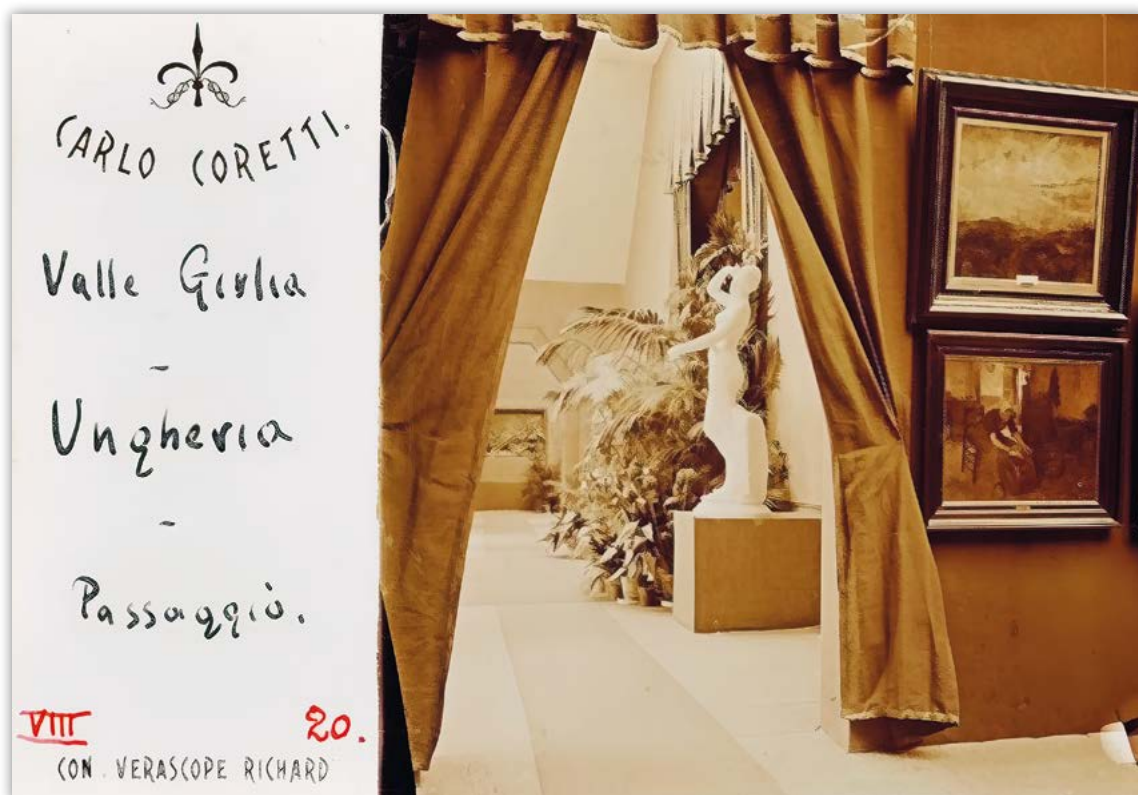 CARLO CORETTI.
Valle Giulia
-
Ungheria
-
Passaggio.
VIII 20.
CON VERASCOPE RICHARD